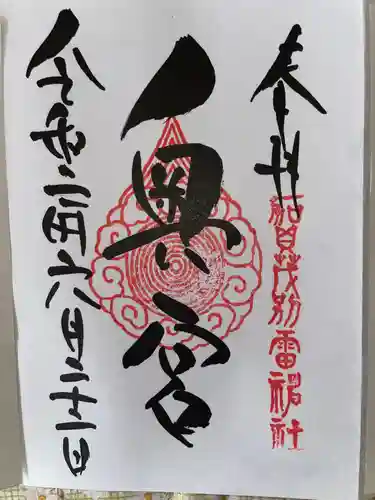 奉拝
賀茂別雷神社
奥宮
令和二年六月二十一日